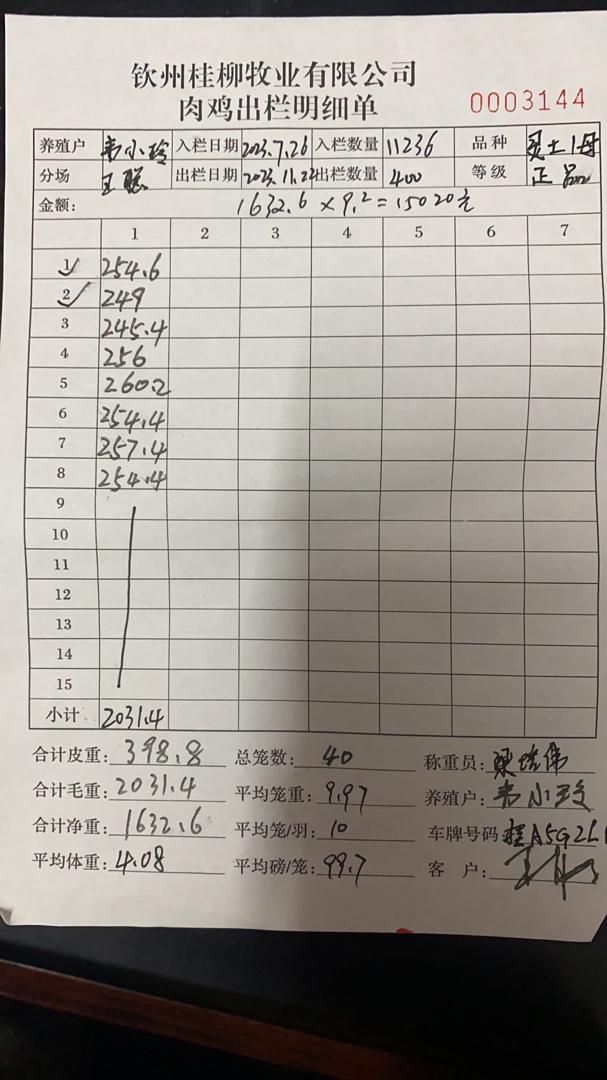 钦州桂柳牧业有限公司
肉鸡出栏明细单 0003144
养殖户 韦小玲 入栏日期 2023.7.26 入栏数量 11236 品种 灵土1母
分场 王聪 出栏日期 2023.11.22 出栏数量 400 等级 正品
金额: 1632.6×9.2=15020元
1 2 3 4 5 6 7
1 254.6
2 249
3 245.4
4 256
5 260.2
6 254.4
7 257.4
8 254.4
9
10
11
12
13
14
15
小计 2031.4
合计皮重: 398.8 总笼数: 40 称重员:
合计毛重: 2031.4 平均笼重: 9.97 养殖户: 韦小玲
合计净重: 1632.6 平均笼/羽: 10 车牌号码: 桂A5G2L
平均体重: 4.08 平均磅/笼: 99.7 客 户: